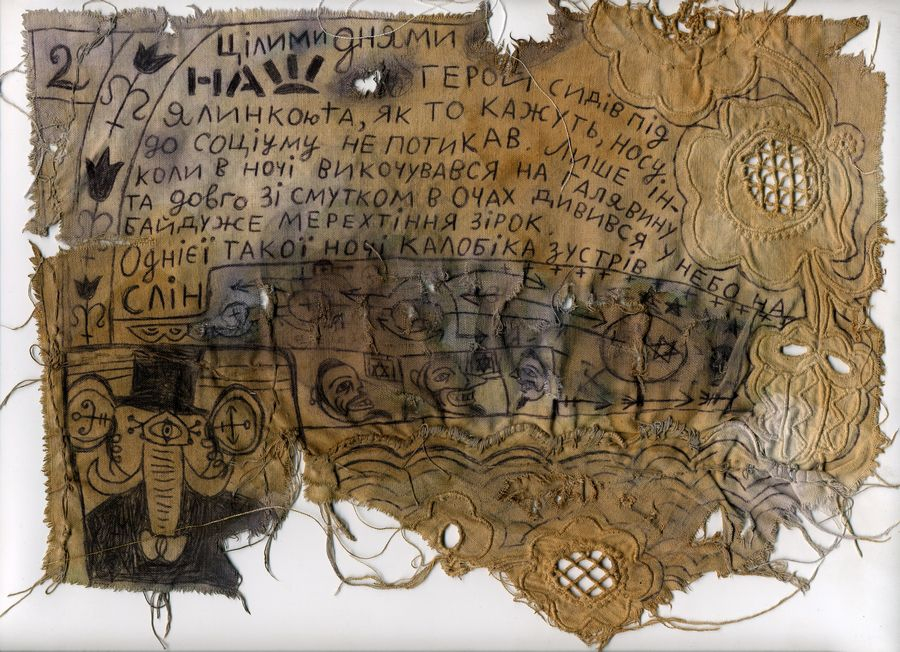 2
ЦІЛИМИ ДНЯМИ
НАШ ГЕРОЙ СИДІВ ПІД
ЯЛИНКОЮ ТА, ЯК ТО КАЖУТЬ, НОСУ
ДО СОЦІУМУ НЕ ПОТИКАВ. ЛИШЕ ІН-
КОЛИ В НОЧІ ВИКОЧУВАВСЯ НА ГАЛЯВИНУ
ТА ДОВГО ЗІ СМУТКОМ В ОЧАХ ДИВИВСЯ У НЕБО НА
БАЙДУЖЕ МЕРЕХТІННЯ ЗІРОК.
ОДНІЄЇ ТАКОЇ НОЧІ КАЛОБІКА ЗУСТРІВ
СЛІН